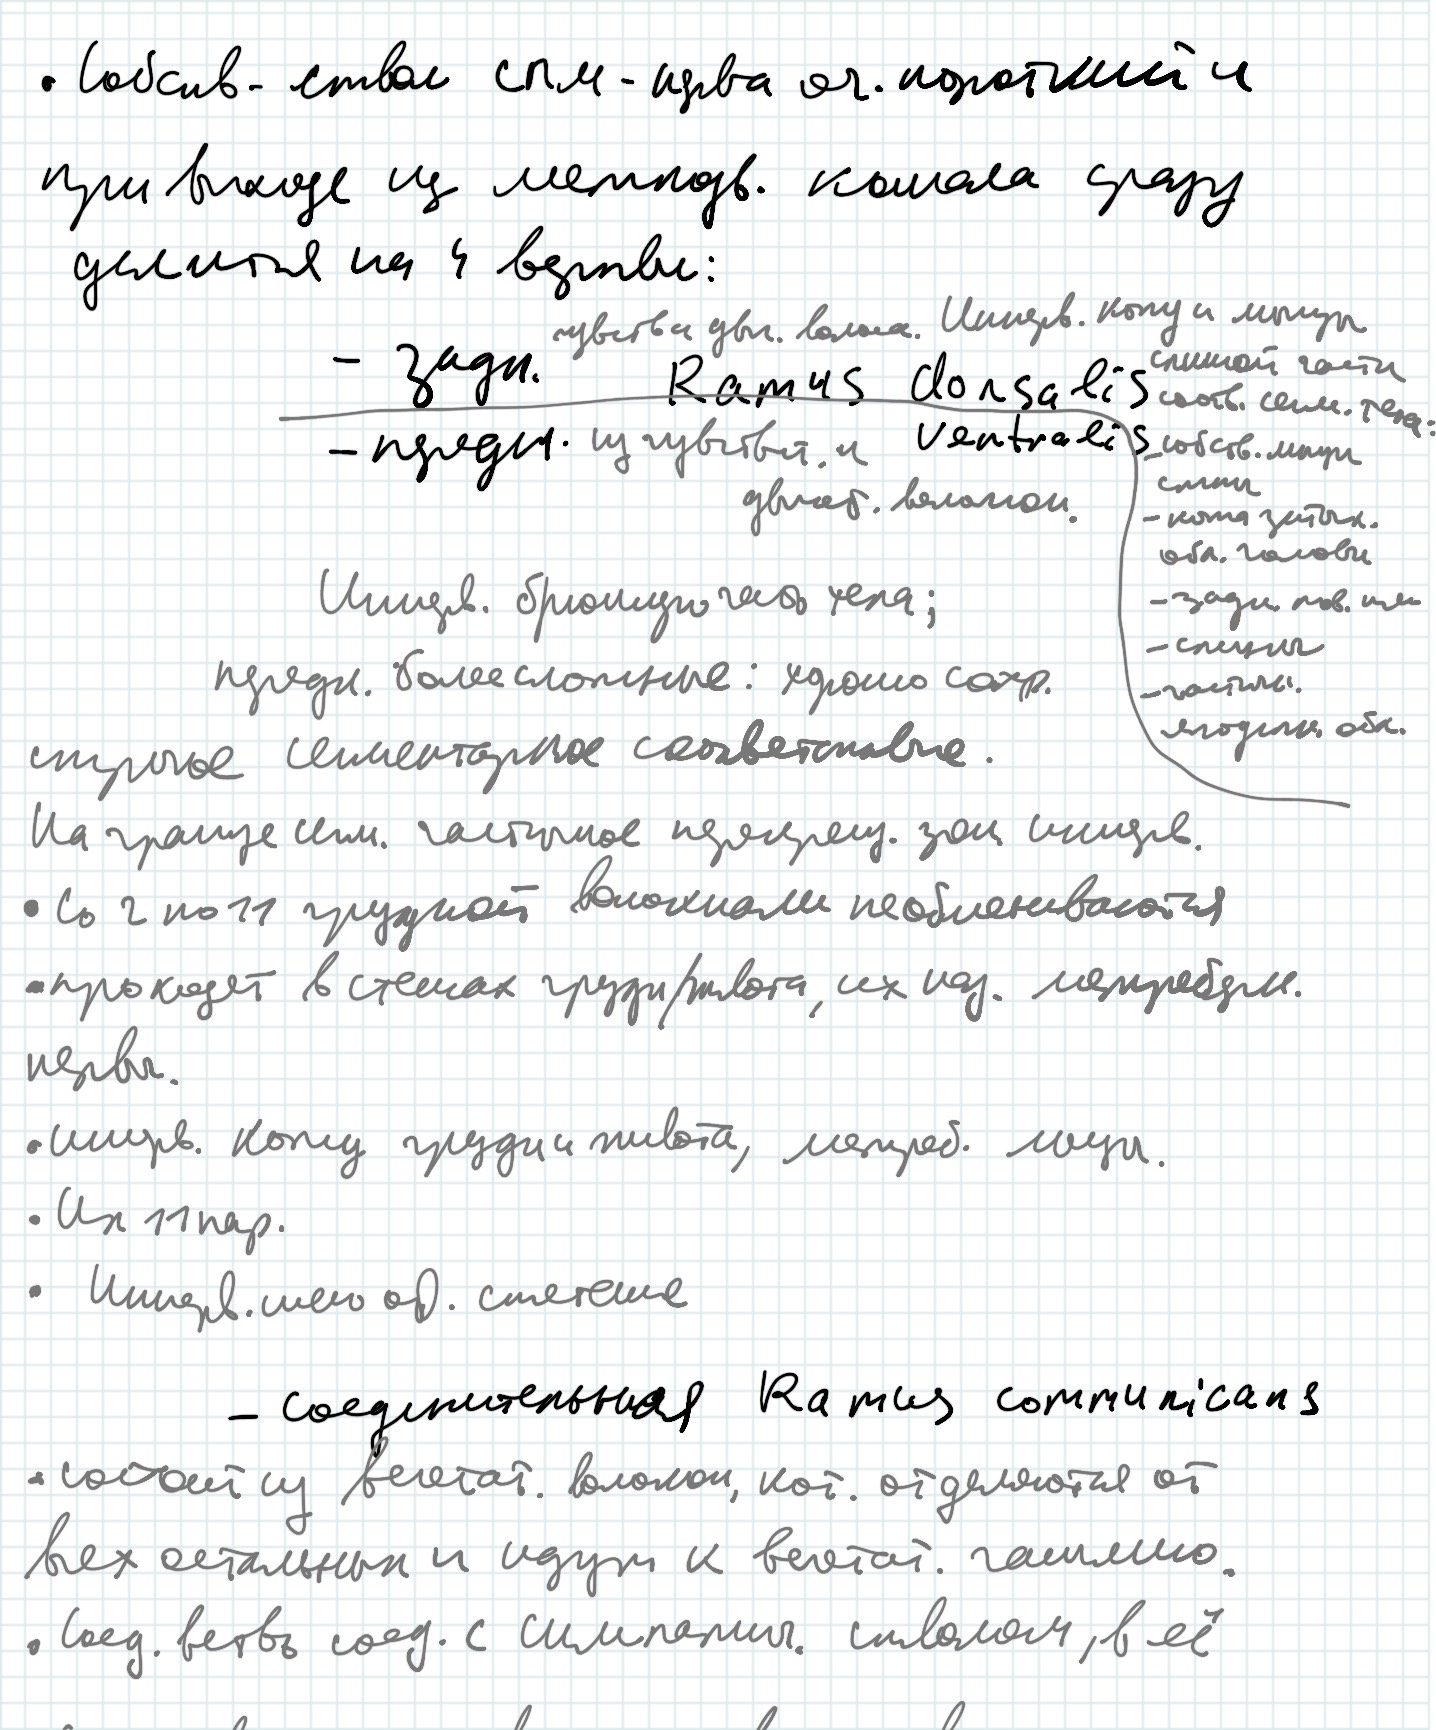 • Собств- ствол СПМ-нерва оч. короткий и
при выходе из межподв. канала сразу
делится на 4 ветви:
чувств и двиг. волокна. Иннерв. кожу и мышцы
- задн. Ramus dorsalis
спинной части
соотв. сегм. тела:
- передн. из чувствит. и ventralis
двигат. волокон.
- собств. мышцы
спины
- кожа затыл.
обл. головы
- задн. пов. шеи
- спины
- частич.
ягодичн. обл.
Иннерв. брюшную часть тела;
передн. более сложные: хорошо сохр.
строгое сегментарное соответствие.
На границе сегм. частичное перекрещ. зон иннерв.
• Со 2 по 11 грудной волокнами не обмениваются
• проходят в стенках груди/живота, их наз. межреберн.
нервы.
• иннерв. кожу груди и живота, межреб. мышцы.
• Их 11 пар.
• Иннерв. шею об. сплетение
- соединительная Ramus communicans
• состоит из вегетат. волокон, кот. отделяются от
всех остальных и идут к вегетат. ганглию.
• Соед. ветвь соед. с симпатич. стволом, в её